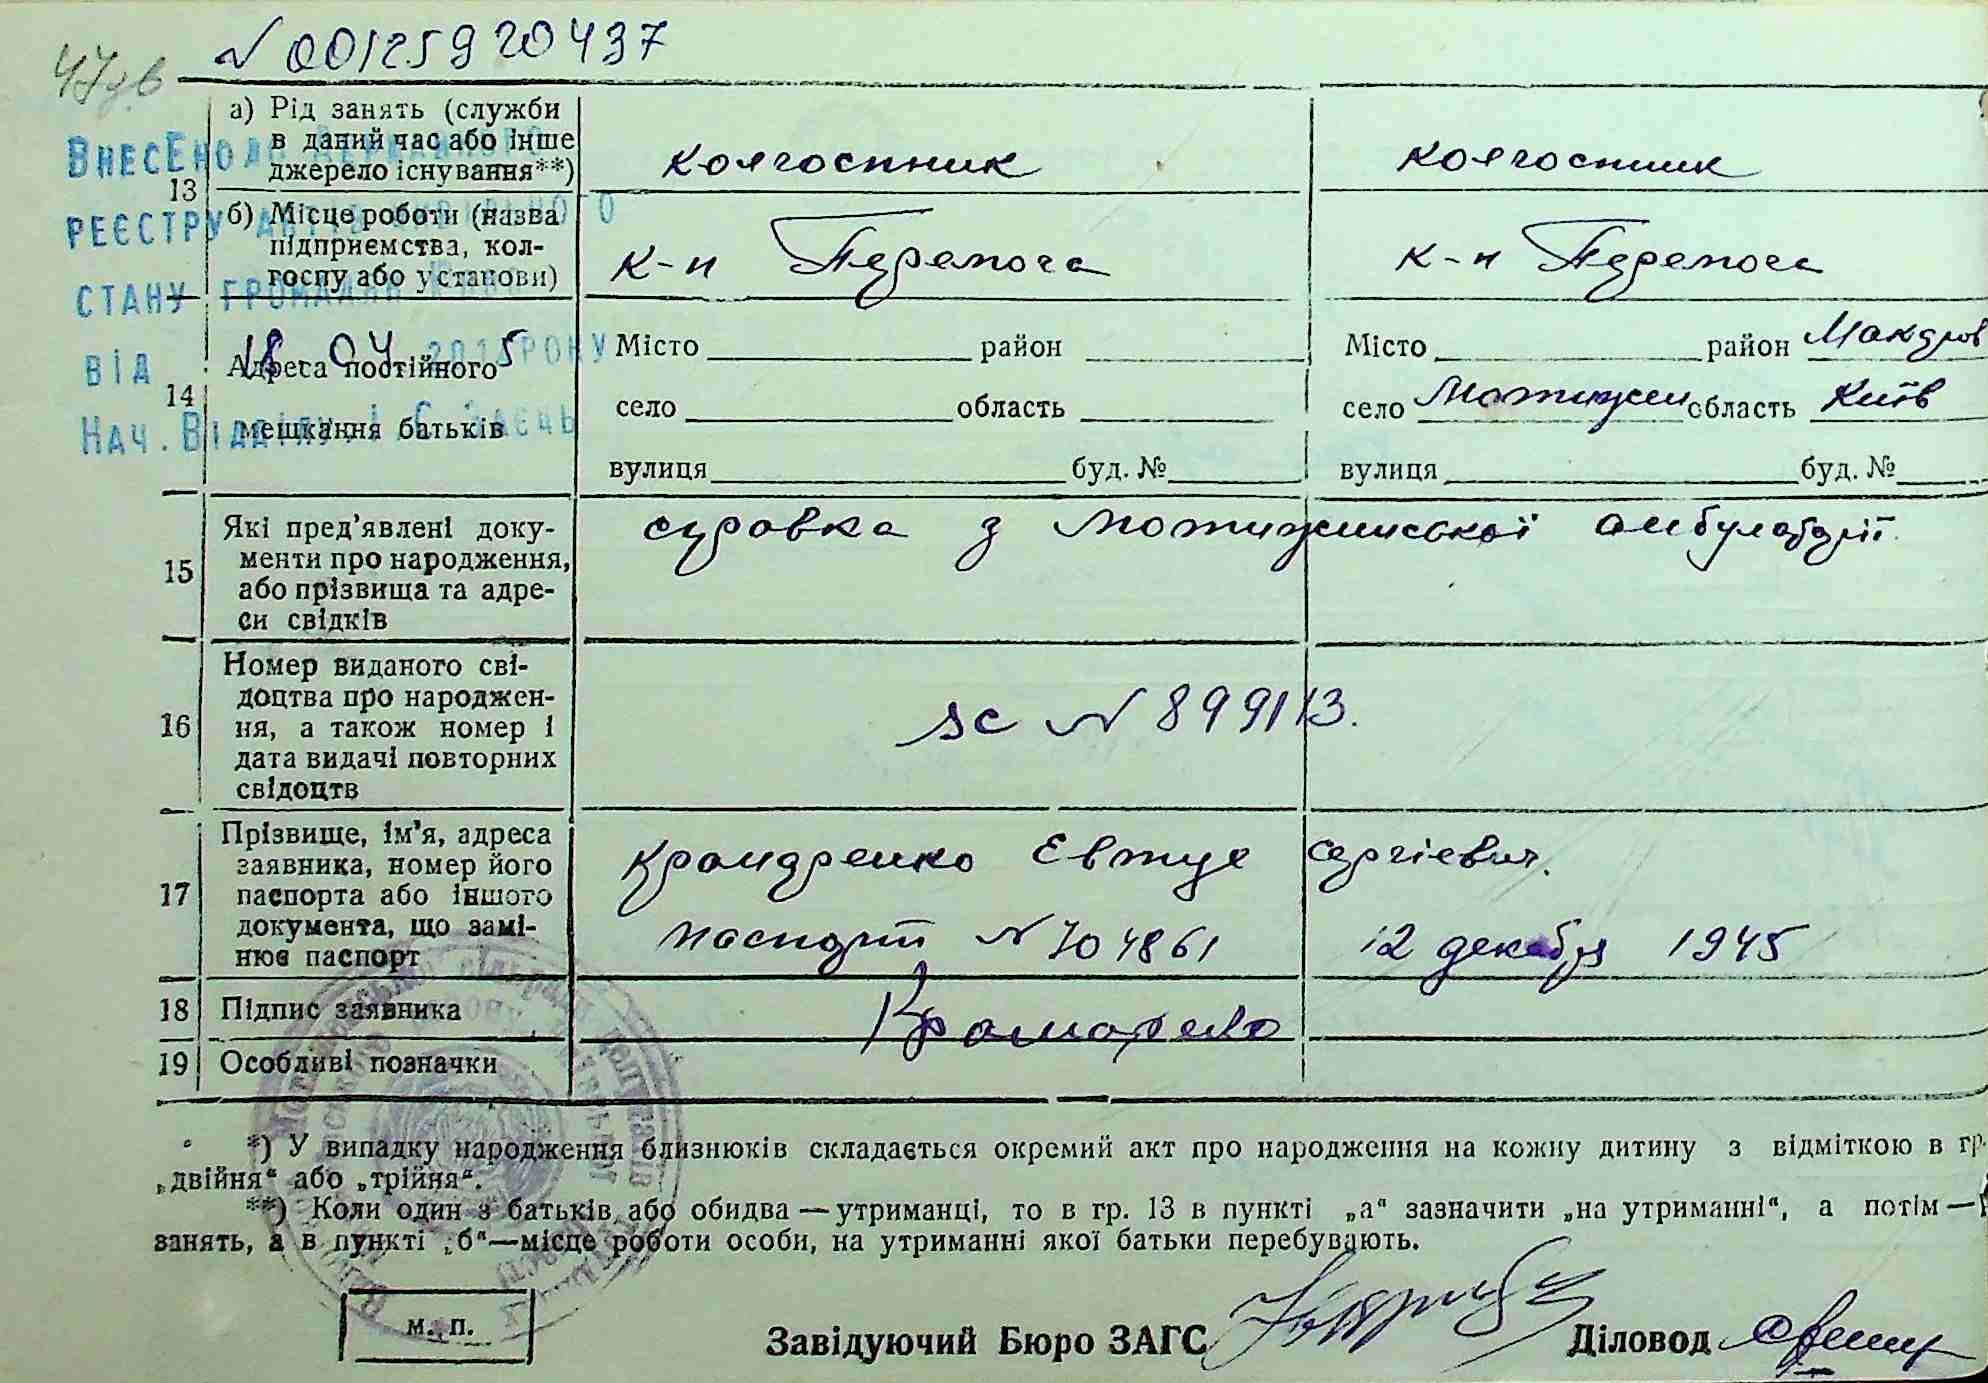 N 00125920437
а) Рід занять (служби
в даний час або інше
джерело існування**)
колгоспник
колгоспник
ВНЕСЕНО ДО ДЕРЖАВНОГО
13
РЕЄСТРУ АКТІВ ЦИВІЛЬНОГО
б) Місце роботи (назва
підприємства, кол-
госпу або установи)
к-п Перемога
к-п Перемога
СТАНУ ГРОМАДЯН
ВІД 18 04 2015 РОКУ
НАЧ. ВІДДІЛУ
14
Адреса постійного
мешкання батьків
Місто район
село область
вулиця буд. №
Місто район Макарів
село Мотижин область Київ
вулиця буд. №
15
Які пред’явлені доку-
менти про народження,
або прізвища та адре-
си свідків
справка з Мотижинської амбулаторії
16
Номер виданого сві-
доцтва про народжен-
ня, а також номер і
дата видачі повторних
свідоцтв
N 899113.
17
Прізвище, ім’я, адреса
заявника, номер його
паспорта або іншого
документа, що замі-
нює паспорт
Сергієвич.
паспорт N 704861 12 декабря 1945
18 Підпис заявника
19 Особливі позначки
*) У випадку народження близнюків складається окремий акт про народження на кожну дитину з відміткою в гр.
„двійня“ або „трійня“.
**) Коли один з батьків або обидва — утриманці, то в гр. 13 в пункті „а“ зазначити „на утриманні“, а потім —
занять, а в пункті „б“—місце роботи особи, на утриманні якої батьки перебувають.
м. п.
Завідуючий Бюро ЗАГС
Діловод